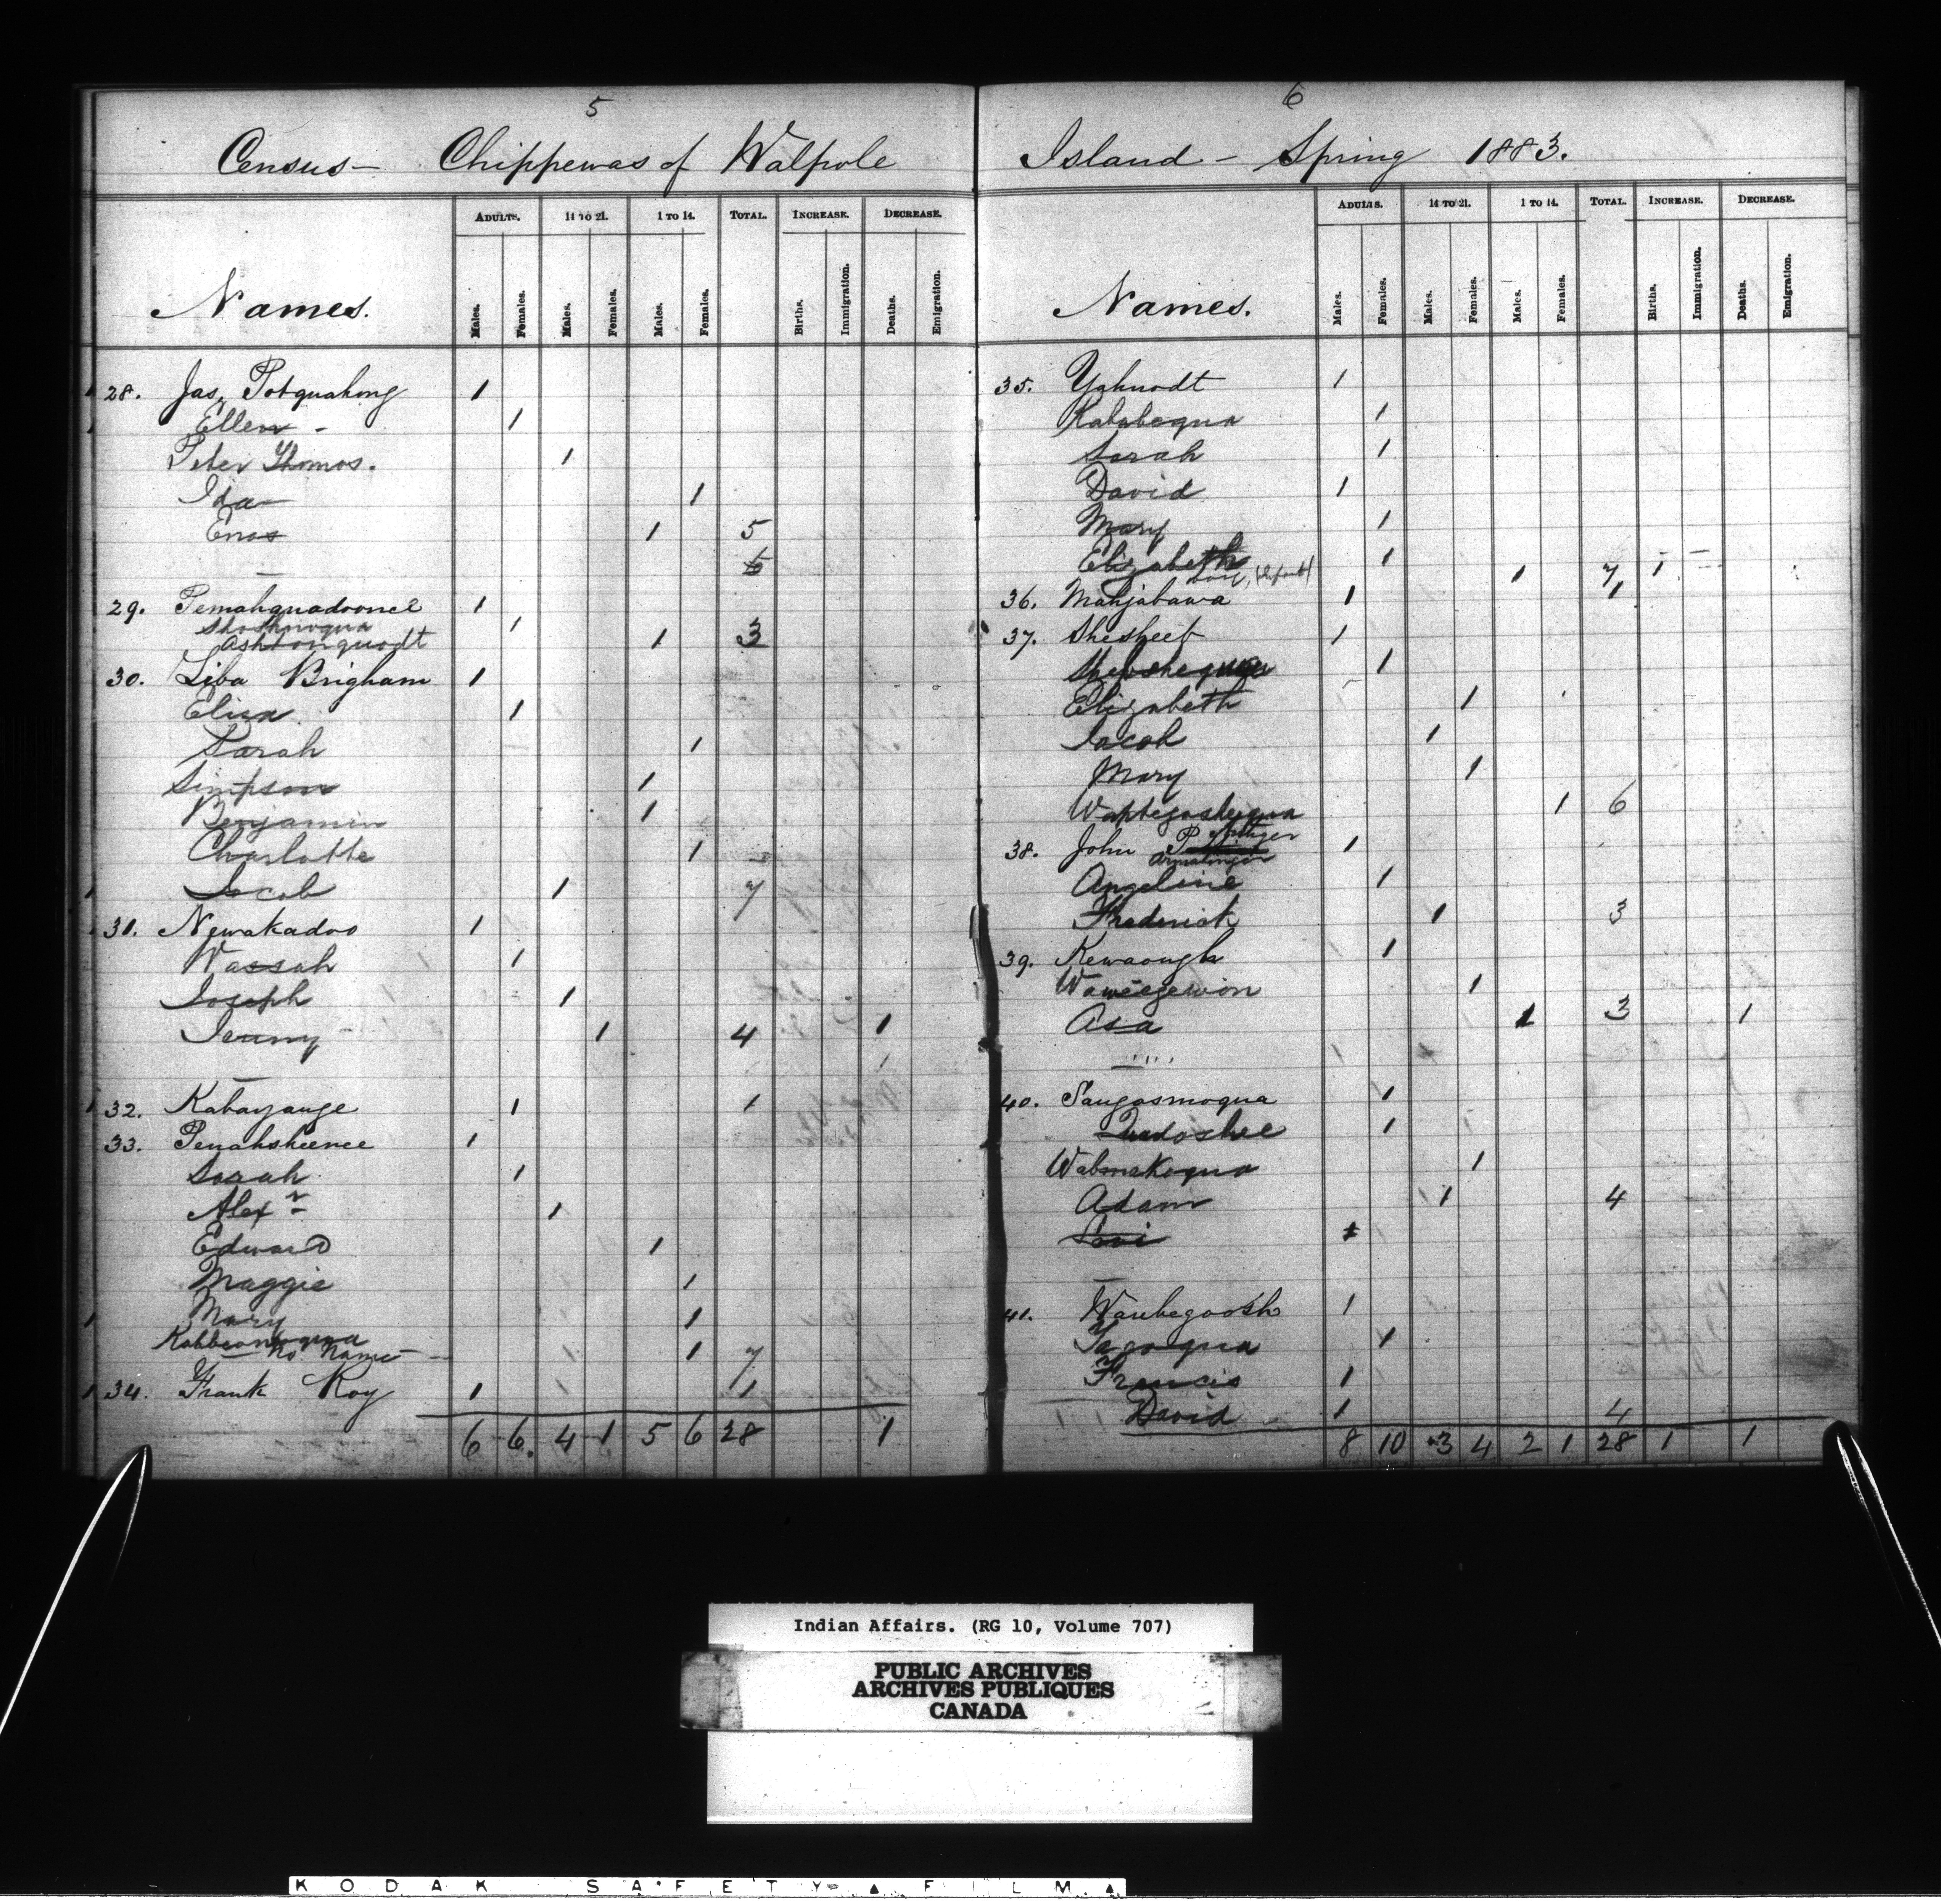 5
Census — Chippewas of Walpole
Names.
ADULTS. 14 TO 21. 1 TO 14. TOTAL. INCREASE. DECREASE.
Males. Females. Males. Females. Males. Females. Births. Immigration. Deaths. Emigration.
28. Jas. Potquahong 1
Ellen - 1
Peter Thomas. 1
Ida 1
Enos 1 5
29. Pemahquadoonce 1
Shoshnoqua 1
Ashtonquodt 1 3
30. Liba Brigham 1
Eliza 1
Sarah 1
Simpson 1
Benjamin 1
Charlotte 1
Jacob 1 7
31. Newakadoo 1
Wassah 1
Joseph 1
Jenny 1 4 1
32. Kabayange 1 1
33. Penahsheence 1
Sarah 1
Alexr 1
Edward 1
Maggie 1
Mary 1
Kahbeonoqua
No Name 1 7
34. Frank Roy 1 1
6 6 4 1 5 6 28 1
6
Island — Spring 1883.
Names.
ADULTS. 14 TO 21. 1 TO 14. TOTAL. INCREASE. DECREASE.
Males. Females. Males. Females. Males. Females. Births. Immigration. Deaths. Emigration.
35. Yahnodt 1
Kababequa 1
Sarah 1
David 1
Mary 1
Elizabeth 1
1 7 1
36. Mahjabawa 1 1
37. Shesheeb 1
1
Elizabeth 1
Jacob 1
Mary 1
Wahbegoshequa 1 6
38. John 1
Angeline 1
Frederick 1 3
39. Kewaough 1
Waweegewon 1
Asa 1 3 1
40. Saugasmoqua 1
Quedoshee 1
Wabmekoqua 1
Adam 1 4
Levi 1
41. Waubegoosh 1
Yacoqua 1
Francis 1
David 1 4
8 10 3 4 2 1 28 1 1
Indian Affairs. (RG 10, Volume 707)
PUBLIC ARCHIVES
ARCHIVES PUBLIQUES
CANADA
KODAK SAFETY FILM